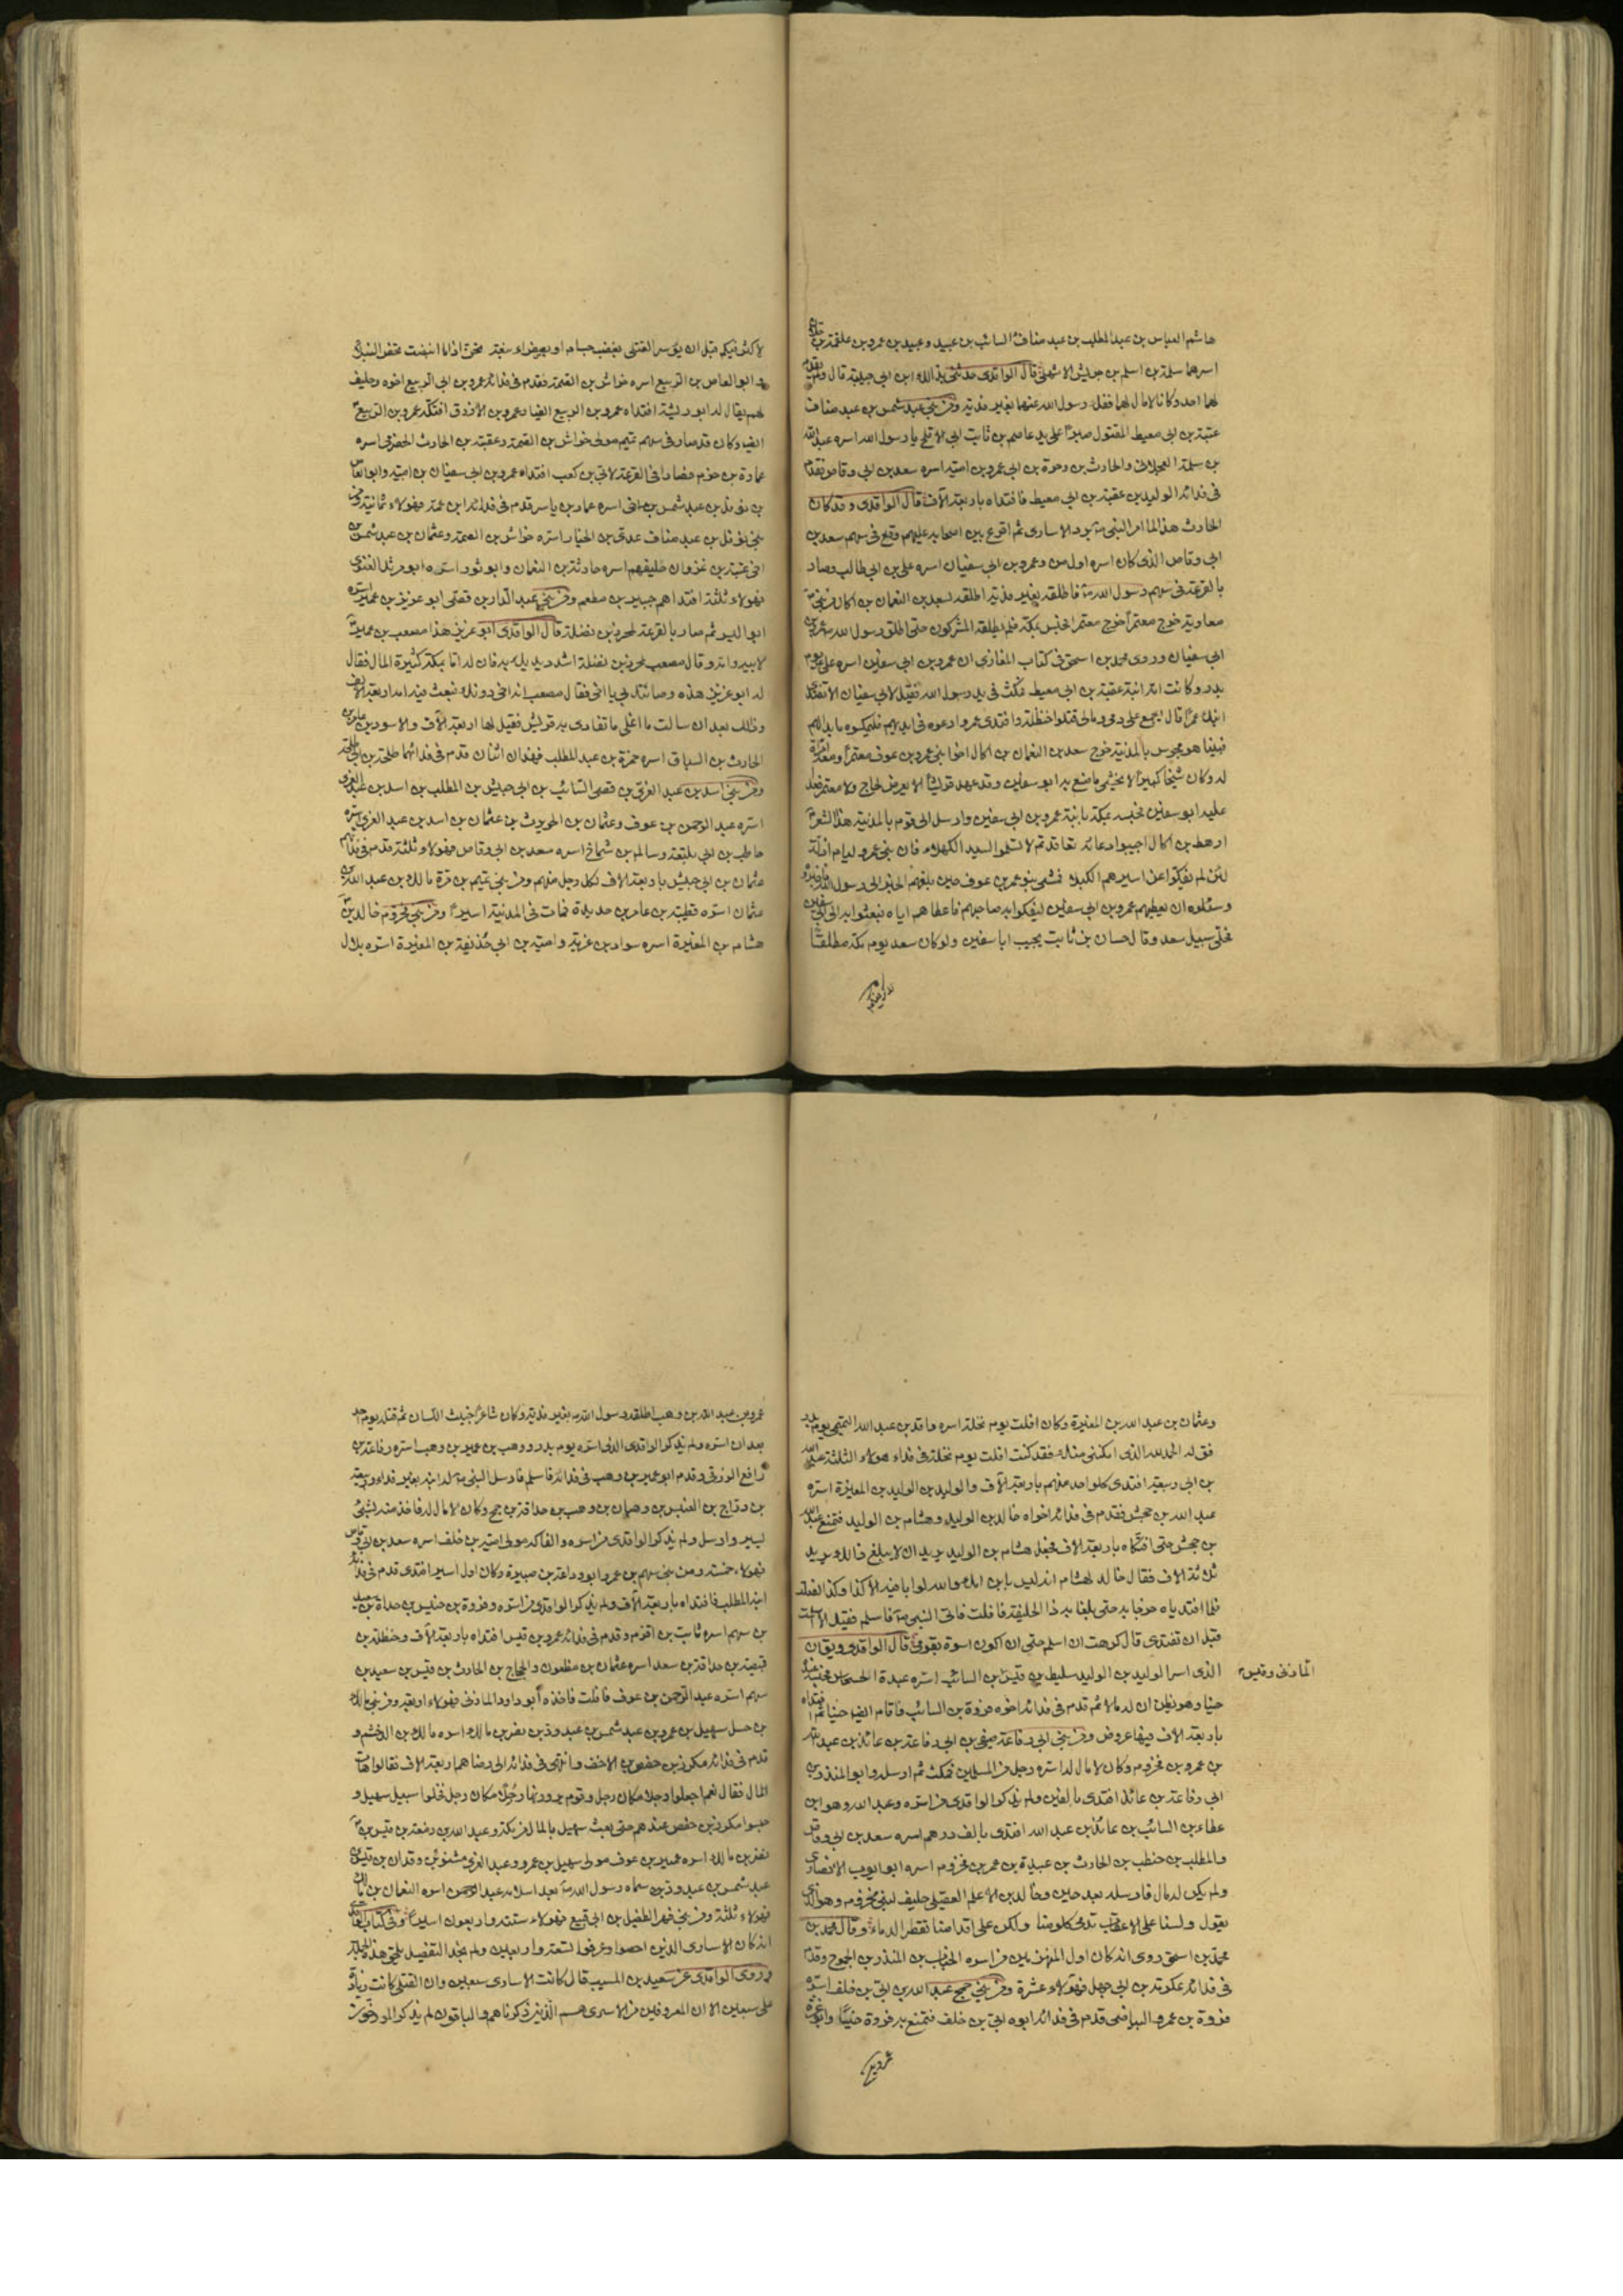 هاشم العباس بن عبد المطلب بن عبد مناف السائب بن عبيد وعبيد بن عمرو بن علقمة بن
اسرهما سلمة بن اسلم بن حريش الاشهلي قال الواقدي حدثني بذلك ابن ابي حبيبة قال ولم يقدم
لهما احد وكانا لا مال لهما ففك رسول الله عنهما بغير فدية ومن بني عبد شمس بن عبد مناف
عقبة بن ابي معيط المقتول صبرا على يد عاصم بن ثابت ابي الاقلح يا رسول الله اسره عبد الله
بن سلمة العجلاني والحارث بن وحرة بن ابي عمرو بن امية اسره سعد بن ابي وقاص فقدم
في فدائه الوليد بن عقبة بن ابي معيط فافتداه باربعة آلاف قال الواقدي وقد كان
الحارث هذا لما امر النبي ص برد الاسارى ثم اقرع بين اصحابه عليهم وقع في سهم سعد بن
ابي وقاص الذي كان اسره اول من وعمرو بن ابي سفيان اسره علي بن ابي طالب وصار
بالقرعة في سهم رسول الله ص فاطلقه بغير فدية اطلقه لسعد بن النعمان بن اكال من بني
معاوية خرج معتمرا فحبس بمكة فلم يطلقه المشركون حتى اطلق رسول الله ص عمرو بن
ابي سفيان وروى محمد بن اسحق في كتاب المغازي ان عمرو بن ابي سفين اسره علي يوم
بدر وكانت امه ابنة عقبة بن ابي معيط فمكث في يد رسول الله فقيل لابي سفيان الا تفتدي
ابنك عمرا قال ايجمع علي دمي ومالي قتلوا حنظلة وافتدي عمرو ادعوه في ايديهم فليمسكوه ما بدا لهم
فبينا هو محبوس بالمدينة خرج سعد بن النعمان بن اكال اخو بني عمرو بن عوف معتمرا ومعه امراة
له وكان شيخا كبيرا لا يخشى ما صنع به ابو سفين وقد عهد قريشا الا يعرض لحاج ولا معتمر فعدا
عليه ابو سفين فحبسه بمكة بابنه عمرو بن ابي سفين وارسل الى قوم بالمدينة هذا الشعر
ارهط بن اكال اجيبوا دعائه تعاقدتم لا تسلموا السيد الكهلا فان بني عمرو لئام اذلة
لئن لم يفكوا عن اسيرهم الكبلا فمشى بنو عمرو بن عوف حين بلغهم الخبر الى رسول الله
وسئلوه ان يعطيهم عمرو بن ابي سفين ليفكوا به صاحبهم فاعطاهم اياه فبعثوا به الى ابي سفين
فخلى سبيل سعد وقال حسان بن ثابت يجيب ابا سفين ولو كان سعد يوم مكة مطلقا
لاكثر فيكم قبل ان يؤسر القتلى بعضب حسام او بصفراء نبعة تحن اذا ما انبضت تحفز النبلا
و ابو العاص بن الربيع اسره خراش بن الصمة فقدم في فدائه عمرو بن ابي الربيع اخوه وحليف
لهم يقال له ابو ريشة افتداه عمرو بن الربيع ايضا وعمرو بن الازرق افتكه عمرو بن الربيع
ايضا وكان قد صار في سهم تميم مولى خراش بن الصمة وعقبة بن الحارث الحضرمي اسره
عمارة بن حزم فصار في القرعة لابي بن كعب افتداه عمرو بن ابي سفيان بن امية وابو العاص
بن نوفل بن عبد شمس اسره عمار بن ياسر قدم في فدائه ابن عمه فهولاء ثمانية ومن
بني نوفل بن عبد مناف عدي بن الخيار اسره خراش بن الصمة وعثمان بن عبد شمس بن
اخي عتبة بن غزوان حليفهم اسره حارثة بن النعمان وابو ثور اسره ابو مرثد الغنوي
فهولاء ثلثة افتداهم جبير بن مطعم ومن بني عبد الدار بن قصي ابو عزيز بن عمير اسره
ابو اليسر ثم صار بالقرعة لمحرز بن نضلة قال الواقدي ابو عزيز هذا مصعب بن عمير
لابيه وامه وقال مصعب لمحرز بن نضلة اشدد يديك به فان له اما بمكة كثيرة المال فقال
له ابو عزيز هذه وصاتك بي يا اخي فقال مصعب انه اخي دونك فبعث فيه امه اربعة آلاف
وذلك بعد ان سالت ما اغلى ما تفادي به قريش فقيل لها اربعة آلاف والاسود بن عامر بن
الحارث بن السباق اسره حمزة بن عبد المطلب فهذان اثنان قدم في فدائهما طلحة بن ابي طلحة
ومن بني اسد بن عبد العزى بن قصي السائب بن ابي حبيش بن المطلب بن اسد بن عبد العزى
اسره عبد الرحمن بن عوف وعثمان بن الحويرث بن عثمان بن اسد بن عبد العزى اسره
حاطب بن ابي بلتعة وسالم بن شماخ اسره سعد بن ابي وقاص فهولاء ثلثة قدم في فدائهم
عثمان بن ابي حبيش باربعة الاف لكل رجل منهم ومن بني تميم بن مرة مالك بن عبد الله بن
عثمان اسره قطبة بن عامر بن حديدة فمات في المدينة اسيرا ومن بني مخزوم خالد بن
هشام بن المغيرة اسره سواد بن غزية وامية بن ابي حذيفة بن المغيرة اسره بلال
وعثمان بن عبد الله بن المغيرة وكان افلت يوم نخلة اسره واقد بن عبد الله التميمي يوم بدر
فقال له الحمد لله الذي امكنني منك فقد كنت افلت يوم نخلة في فداء هولاء الثلثة عبد الله
بن ابي ربيعة افتدى كل واحد منهم باربعة آلاف والوليد بن الوليد بن المغيرة اسره
عبد الله بن جحش فقدم في فدائه اخواه خالد بن الوليد وهشام بن الوليد فتمنع عبد الله
بن جحش حتى افتكاه باربعة الاف فجعل هشام بن الوليد يريد ان لا يبلغ ذلك يريد
ثلاثة الاف فقال خالد لهشام انه ليس بابن امك والله لو ابى فيه الا كذا وكذا لفعلت
فلما افتدياه خرجا به حتى بلغا به ذا الحليفة فافلت فاتى النبي ص فاسلم فقيل الا اسلمت
قبل ان تفتدى قال كرهت ان اسلم حتى اكون اسوة بقومي قال الواقدي ويقال ان
الذي اسر الوليد بن الوليد سليط بن قيس
المازني وقيس
بن السائب اسره عبدة الحسحاس فحبسه عنده
حينا وهو يظن ان له مالا ثم قدم في فدائه اخوه فروة بن السائب فاقام ايضا حينا ثم افتداه
باربعة الاف فيها عروض ومن بني ابي رفاعة صيفي بن ابي رفاعة بن عائذ بن عبد الله
بن عمرو بن مخزوم وكان لا مال له اسره رجل من المسلمين فمكث ثم ارسله وابو المنذر بن
ابي رفاعة بن عائذ افتدي بالفين ولم يذكر الواقدي من اسره وعبد الله وهو ابن
عطاء بن السائب بن عائذ بن عبد الله افتدي بالف درهم اسره سعد بن ابي وقاص
والمطلب بن حنطب بن الحارث بن عبيدة بن عمر بن مخزوم اسره ابو ايوب الانصاري
ولم يكن له مال فارسله بعد حين وخالد بن الاعلم العقيلي حليف لبني مخزوم وهو الذي
يقول ولسنا على الاعقاب تدمى كلومنا ولكن على اقدامنا تقطر الدماء وقال محمد بن
محمد بن اسحق روى انه كان اول المنهزمين من اسره الحباب بن المنذر بن الجموح وقدم
في فدائه عكرمة بن ابي جهل فهولاء عشرة ومن بني جمح عبد الله بن ابي بن خلف اسره
فروة بن عمرو البياضي قدم في فدائه ابوه ابي بن خلف فتمنع به فروة حينا وابو عزة
عمرو بن
عمرو بن عبد الله بن وهب اطلقه رسول الله ص بغير فدية وكان شاعرا خبيث اللسان ثم قتله يوم احد
بعد ان اسره ولم يذكر الواقدي الذي اسره يوم بدر ووهب بن عمير بن وهب اسره رفاعة بن
رافع الزرقي وقدم ابو عمير بن وهب في فدائه فاسلم فارسل النبي ص له ابنه بغير فداء وربيعة
بن دراج بن العنبس بن وهبان بن وهب بن حذافة بن جمح وكان لا مال له فاخذ منه بشيء
يسير وارسل ولم يذكر الواقدي من اسره والفاكه مولى امية بن خلف اسره سعد بن ابي وقاص
فهولاء خمسة ومن بني سهم بن عمرو ابو وداعة بن صبيرة وكان اول اسير افتدي قدم في فدائه
ابنه المطلب فافتداه باربعة آلاف ولم يذكر الواقدي من اسره وفروة بن خنيس بن حذافة بن سعيد
بن سهم اسره ثابت بن اقزم وقدم في فدائه عمرو بن قيس افتداه باربعة الاف وحنظلة بن
قبيصة بن حذافة بن سعد اسره عثمان بن مظعون والحجاج بن الحارث بن قيس بن سعيد بن
سهم اسره عبد الرحمن بن عوف فافلت فاخذه ابو داود المازني فهولاء اربعة ومن بني مالك
بن حسل سهيل بن عمرو بن عبد شمس بن عبد ود بن نصر بن مالك اسره مالك بن الدخشم و
قدم في فدائه مكرز بن حفص بن الاخيف وانتهى في فدائه الى رضاهم اربعة الاف فقالوا هات
المال فقال نعم اجعلوا رجلا مكان رجل وقوم يروونها رجلا مكان رجل فخلوا سبيل سهيل و
حبسوا مكرز بن حفص عندهم حتى بعث سهيل بالمال من مكة وعبد الله بن زمعة بن قيس بن
نصر بن مالك اسره عمير بن عوف مولى سهيل بن عمرو وعبد العزى بن مشنوء بن وقدان بن قيس بن
عبد شمس بن عبد ود بن سماه رسول الله ص بعد اسلامه عبد الرحمن اسره النعمان بن مالك
فهولاء ثلثة ومن بني فهر الطفيل بن ابي قنيع فهولاء ستة واربعون اسيرا وفي كتاب
انه كان الاسارى الذين احصوا وعرفوا تسعة واربعين ولم نجد التفصيل يلحق هذه الجملة
وروى الواقدي عن سعيد بن المسيب قال كانت الاسارى سبعين وان القتلى كانت زيادة
على سبعين الا ان المعروفين من الاسرى هم الذين ذكرناهم والباقون لم يذكر المورخون